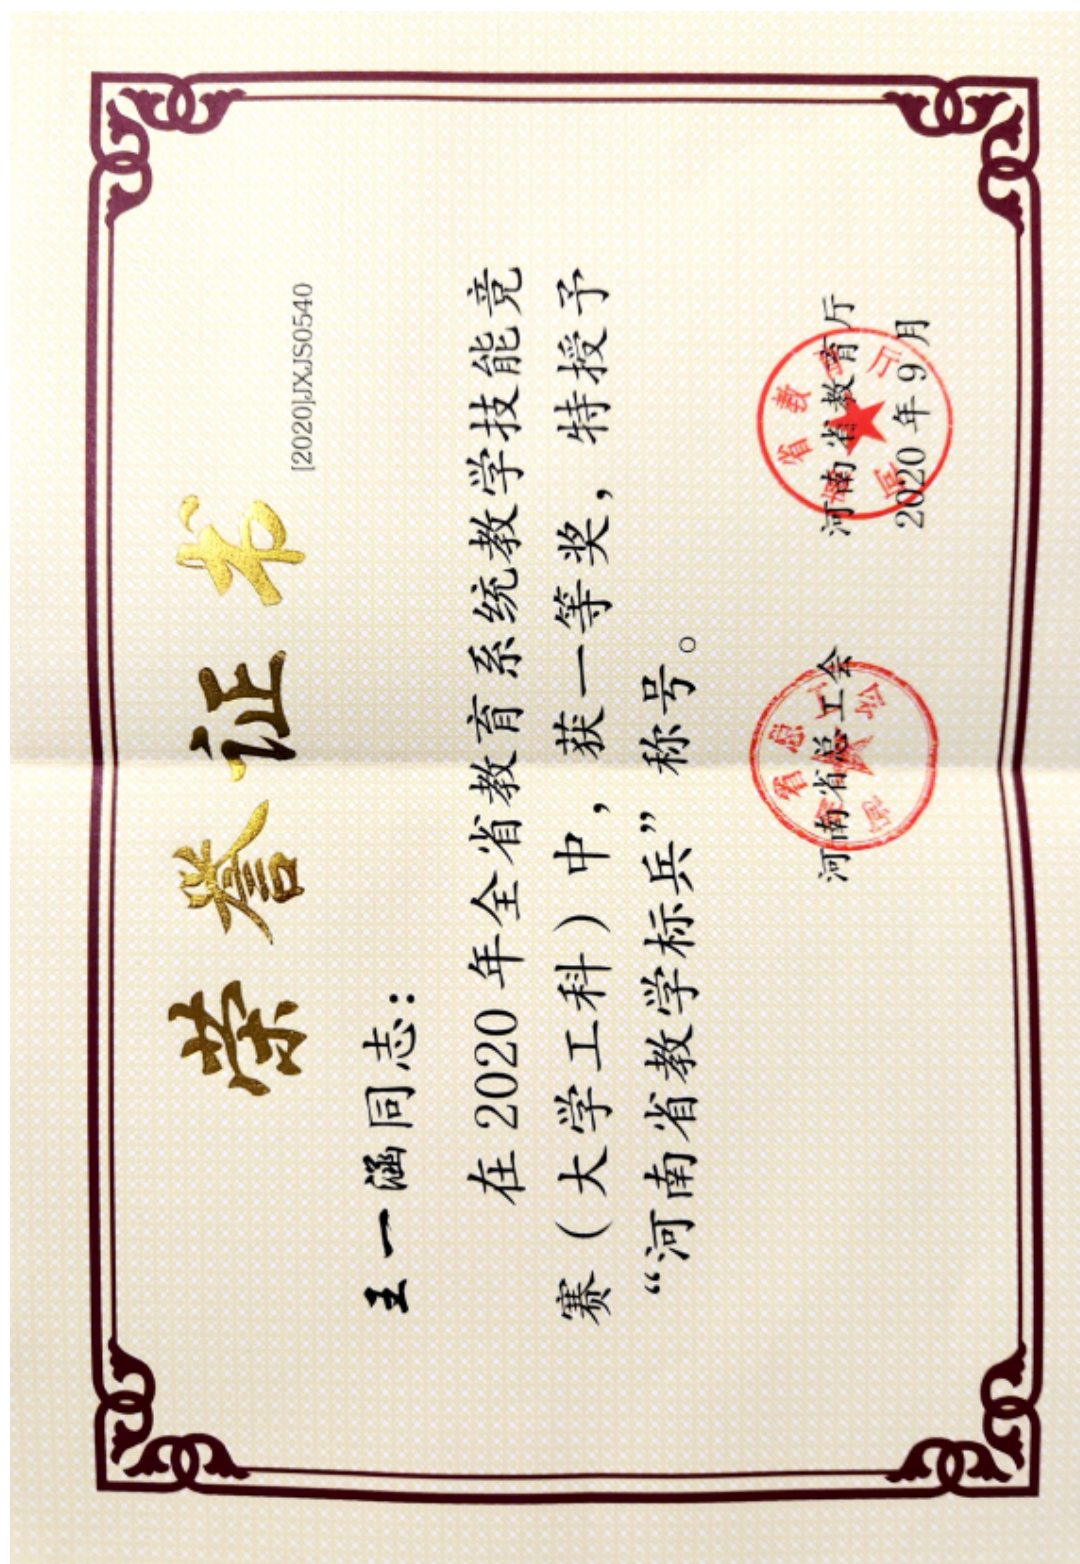 荣誉证书
[2020]JXJS0540
王一涵同志：
在2020年全省教育系统教学技能竞
赛（大学工科）中，获一等奖，特授予
“河南省教学标兵”称号。
河南省总工会 河南省教育厅
2020年9月
河南省总工会
河南省教育厅